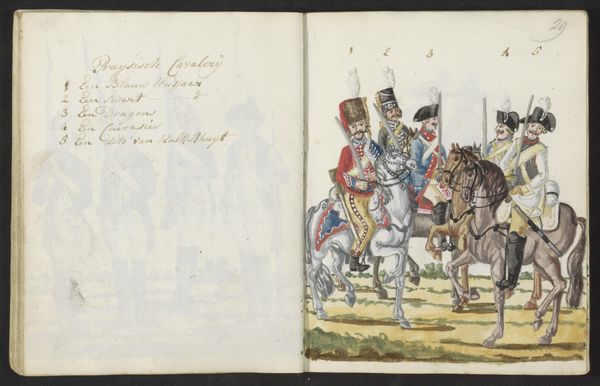 Pruysisch Cavalery
1 Een Blauw Hussaar
2 Een Swart d°
3 Een Dragon
4 Een Cuirasier
5 Een dito van
29
1 2 3 4 5